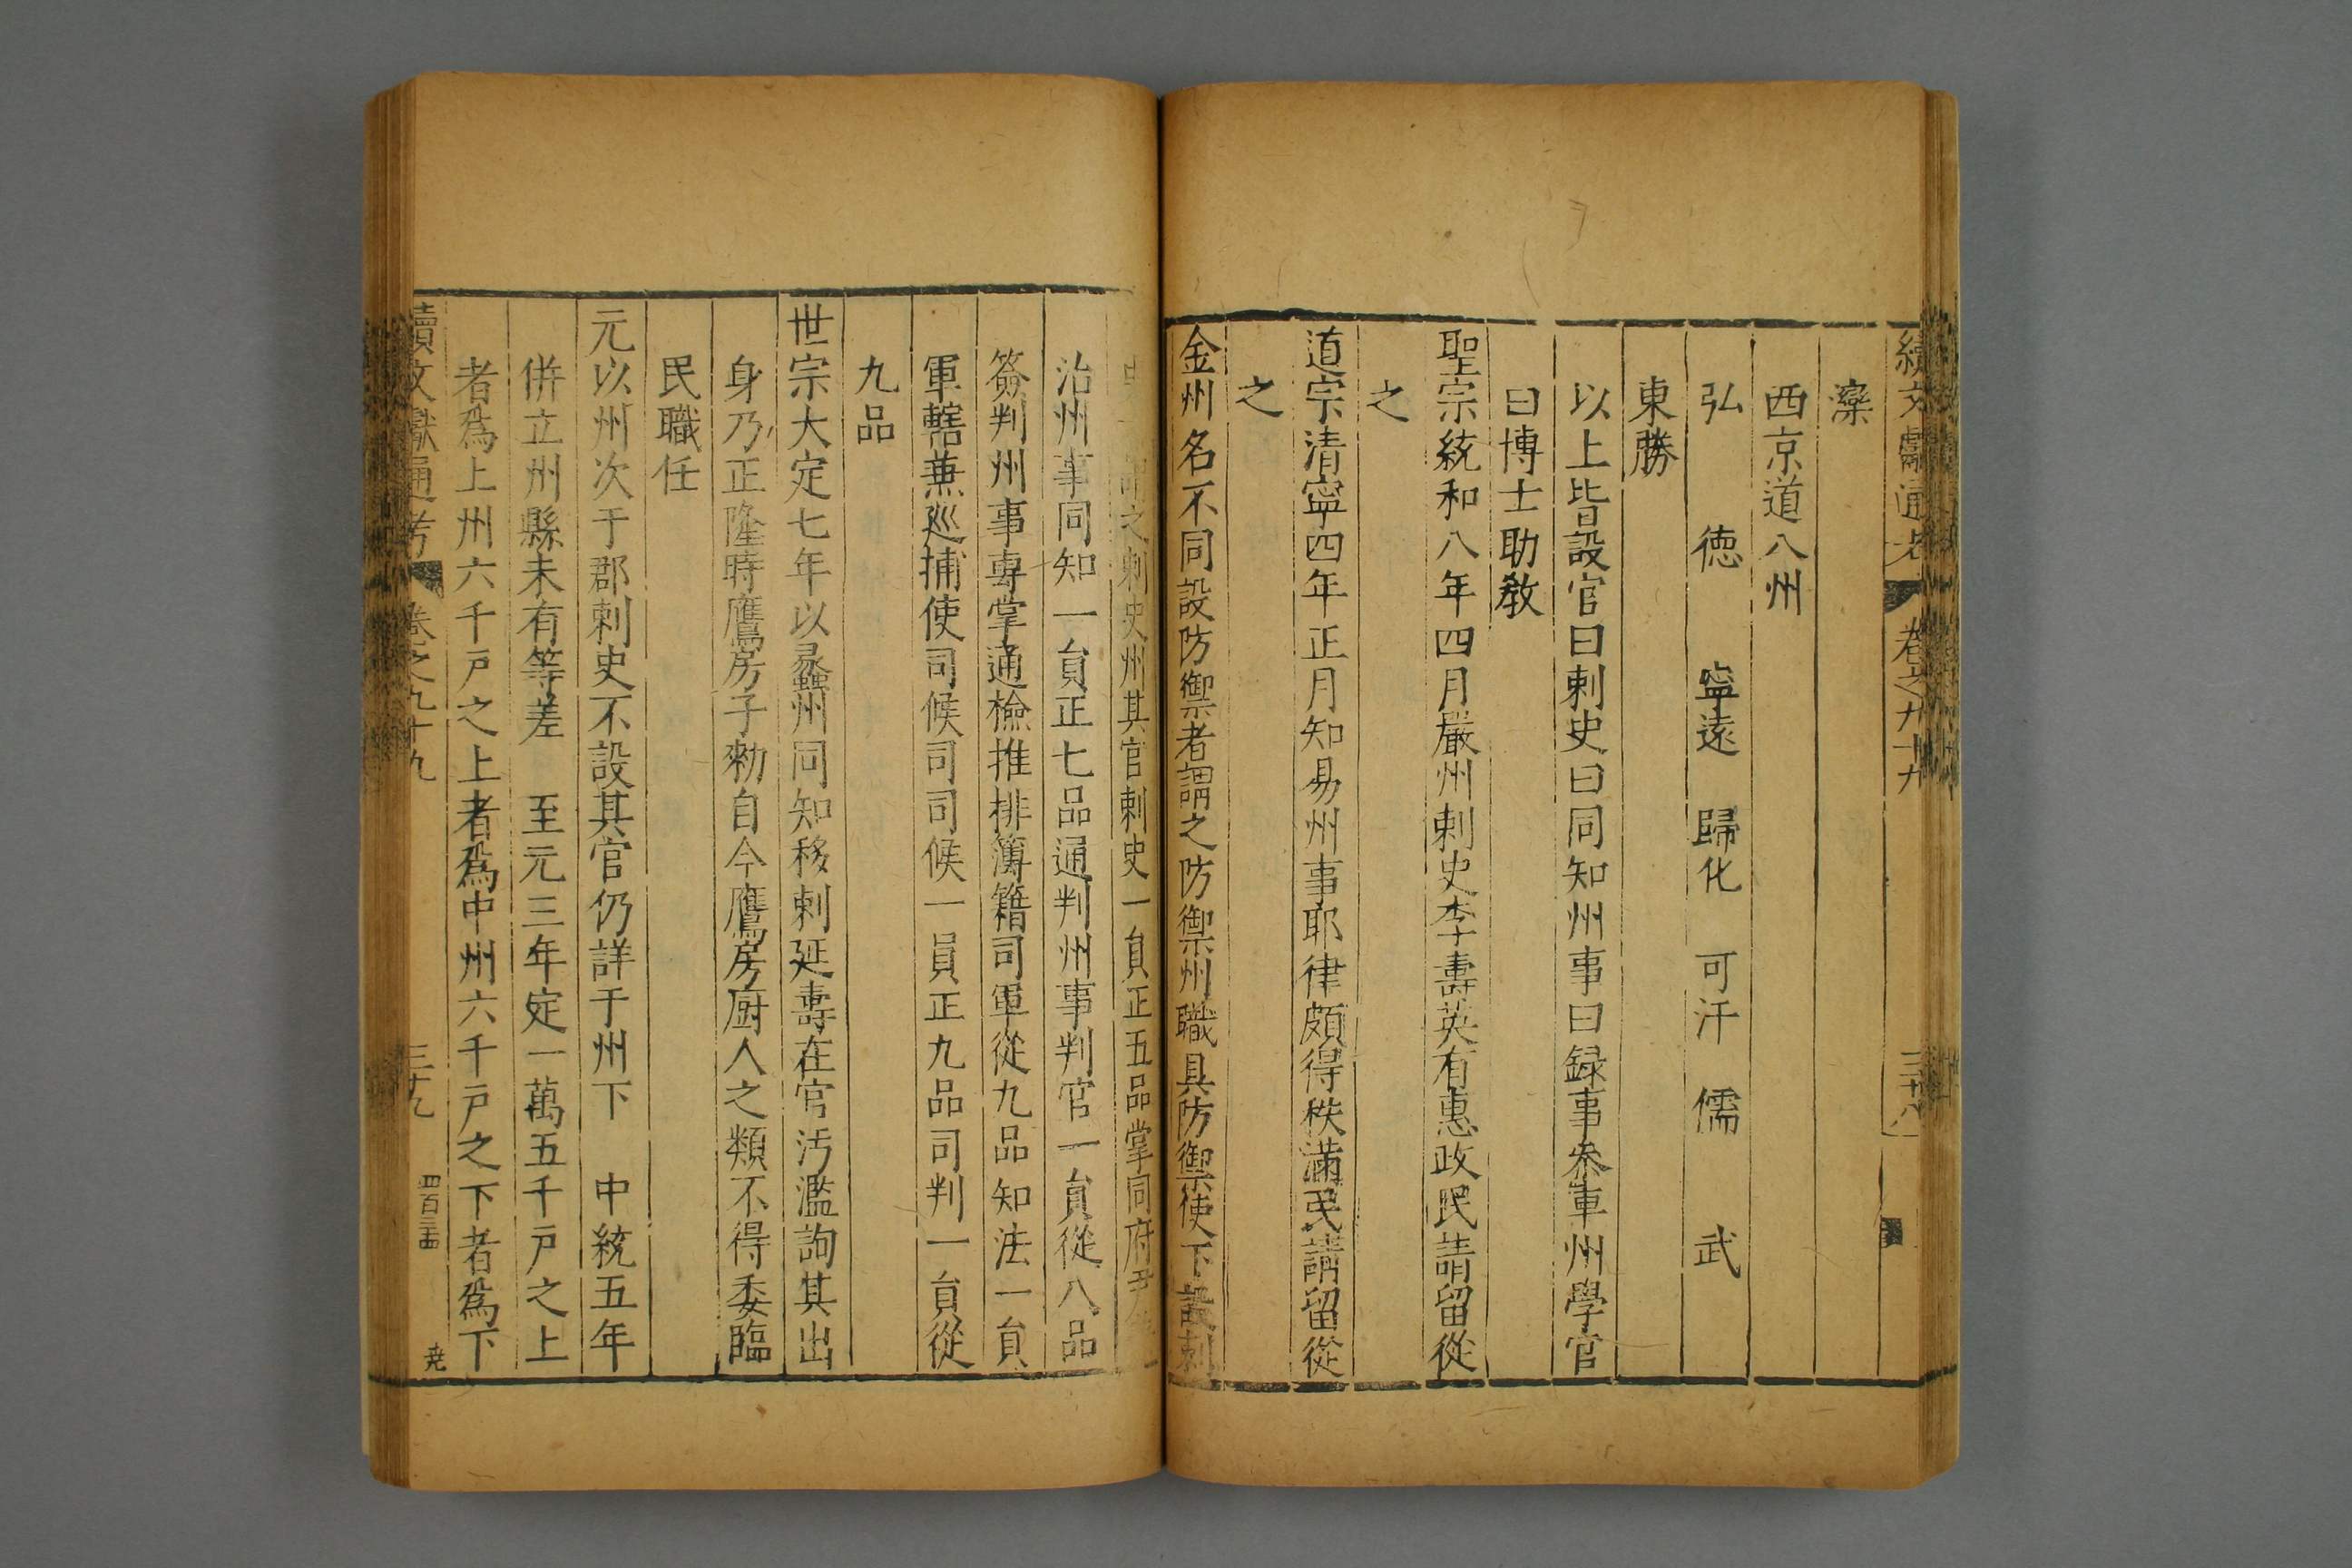 續文獻通考 卷之九十九 三十八
灤
西京道八州
弘 德 寧遠 歸化 可汗 儒 武
東勝
以上皆設官曰刺史曰同知州事曰録事叅軍州學官
曰博士助教
聖宗統和八年四月嚴州刺史李壽英有惠政民請留從
之
道宗清寧四年正月知易州事耶律頗得秩滿民請留從
之
金州名不同設防禦者謂之防禦州職具防禦使下設刺
史者謂之刺史州其官刺史一員正五品掌同府尹兼
治州事同知一員正七品通判州事判官一員從八品
簽判州事專掌通檢推排簿籍司軍從九品知法一員
軍轄兼廵捕使司候司司候一員正九品司判一員從
九品
世宗大定七年以曷州同知移剌延壽在官汚濫詢其出
身乃正隆時鷹房子勑自今鷹房厨人之類不得委臨
民職任
元以州次于郡刺史不設其官仍詳于州下 中統五年
併立州縣未有等差 至元三年定一萬五千戸之上
者爲上州六千戸之上者爲中州六千戸之下者爲下
續文獻通考 卷之九十九 三十九